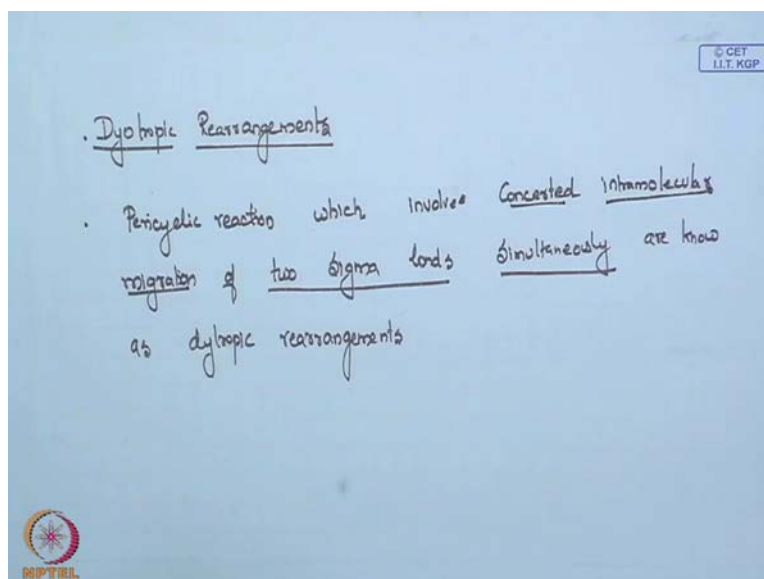 © CET
I.I.T. KGP
. Dyotropic Rearrangements
. Pericyclic reaction which involve Concerted intramolecular
migration of two sigma bonds simultaneously are know
as dytropic rearrangements
NPTEL